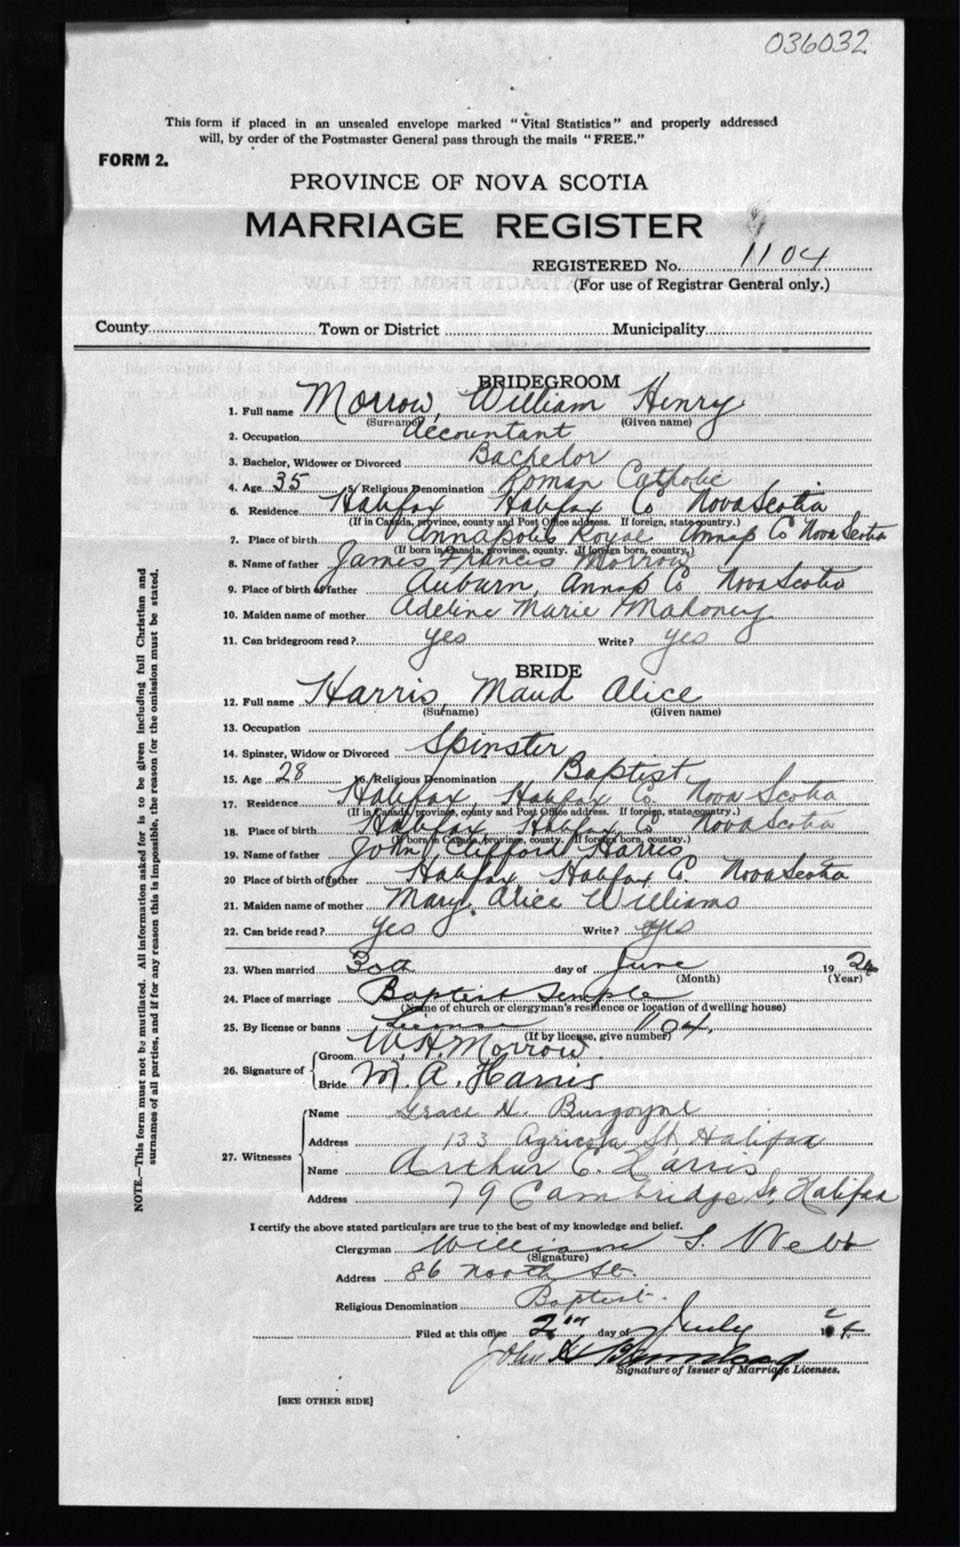 036032
This form if placed in an unsealed envelope marked "Vital Statistics" and properly addressed
will, by order of the Postmaster General pass through the mails "FREE."
FORM 2.
PROVINCE OF NOVA SCOTIA
MARRIAGE REGISTER
REGISTERED No. 1104
(For use of Registrar General only.)
County Town or District Municipality
BRIDEGROOM
1. Full name Morrow, William Henry
(Surname) (Given name)
2. Occupation Accountant
3. Bachelor, Widower or Divorced Bachelor
4. Age 35 5. Religious Denomination Roman Catholic
6. Residence Halifax Halifax Co Nova Scotia
(If in Canada, province, county and Post Office address. If foreign, state country.)
7. Place of birth Annapolis Royal Annap Co Nova Scotia
(If born in Canada, province, county. If foreign born, country.)
8. Name of father James Francis Morrow
9. Place of birth of father Auburn, Annap Co Nova Scotia
10. Maiden name of mother Adeline Marie Mahoney
11. Can bridegroom read? yes Write? yes
BRIDE
12. Full name Harris, Maud Alice
(Surname) (Given name)
13. Occupation
14. Spinster, Widow or Divorced Spinster
15. Age 28 16. Religious Denomination Baptist
17. Residence Halifax, Halifax Co Nova Scotia
(If in Canada, province, county and Post Office address. If foreign, state country.)
18. Place of birth Halifax, Halifax Co Nova Scotia
(If born in Canada, province, county. If foreign born, country.)
19. Name of father John Clifford Harris
20 Place of birth of father Halifax, Halifax Co Nova Scotia
21. Maiden name of mother Mary Alice Williams
22. Can bride read? Yes Write? yes
23. When married 30th day of June 1924
(Month) (Year)
24. Place of marriage Baptist Temple
(Name of church or clergyman's residence or location of dwelling house)
25. By license or banns License 1104.
(If by license, give number)
26. Signature of Groom W. H. Morrow.
Bride M. A. Harris
27. Witnesses Name Grace H. Burgoyne
Address 133 Agricola St. Halifax
Name Arthur C. Harris
Address 79 Cambridge St, Halifax
I certify the above stated particulars are true to the best of my knowledge and belief.
Clergyman William S. Webb
(Signature)
Address 86 North St.
Religious Denomination Baptist.
Filed at this office 2nd day of July 1924
John H
Signature of Issuer of Marriage Licenses.
[SEE OTHER SIDE]
NOTE.—This form must not be mutilated. All information asked for is to be given including full Christian and
surnames of all parties, and if for any reason this is impossible, the reason for the omission must be stated.